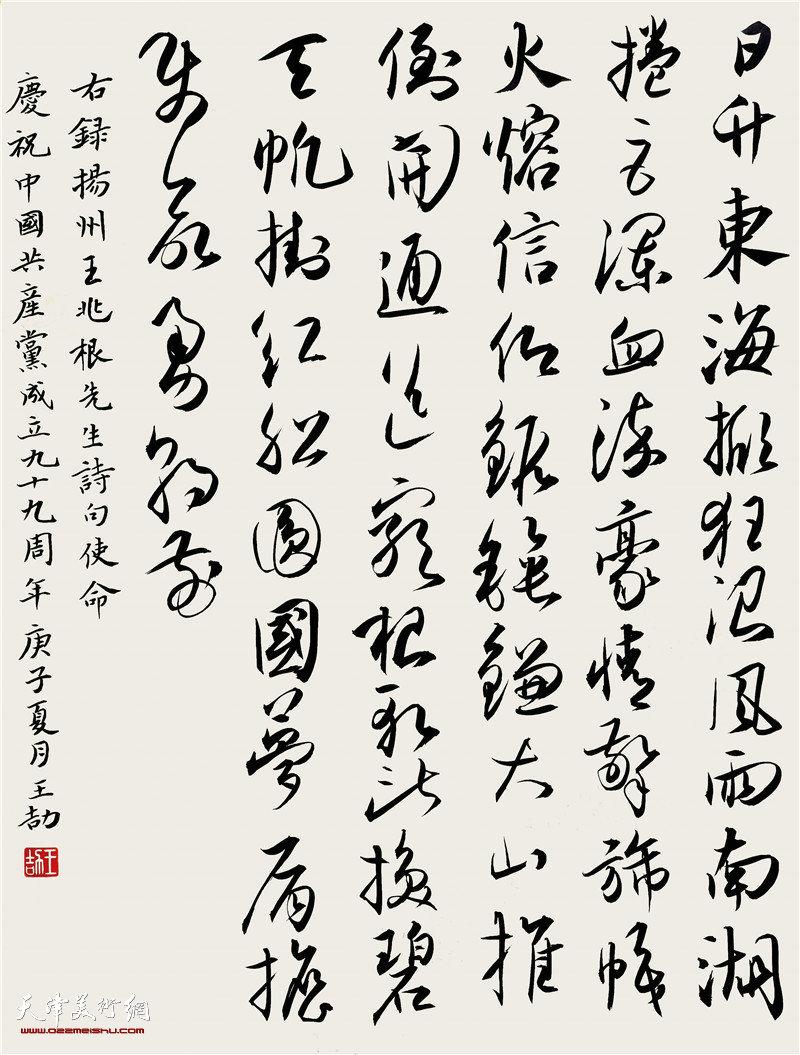 日升東海掀狂浪風雨南湖
捲巨瀾血染豪情擎旆幟
火熔信仰鍛錘鐮大山推
倒開通道窮根換碧
天帆掛紅船圓國夢肩擔
使命勇朝前
右録揚州王兆根先生詩句使命
慶祝中國共產黨成立九十九周年 庚子夏月王劼
王劼
天津美術網
www.022meishu.com